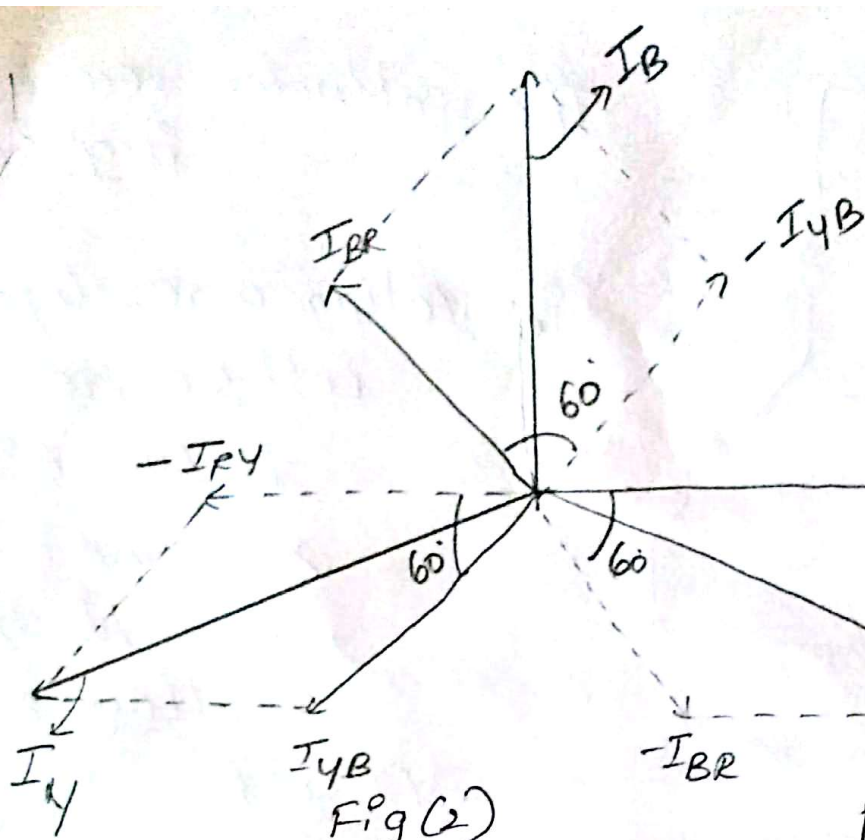 I_B
- I_YB
I_BR
60°
- I_RY
60°
60°
I_y
I_YB
-I_BR
Fig (2)